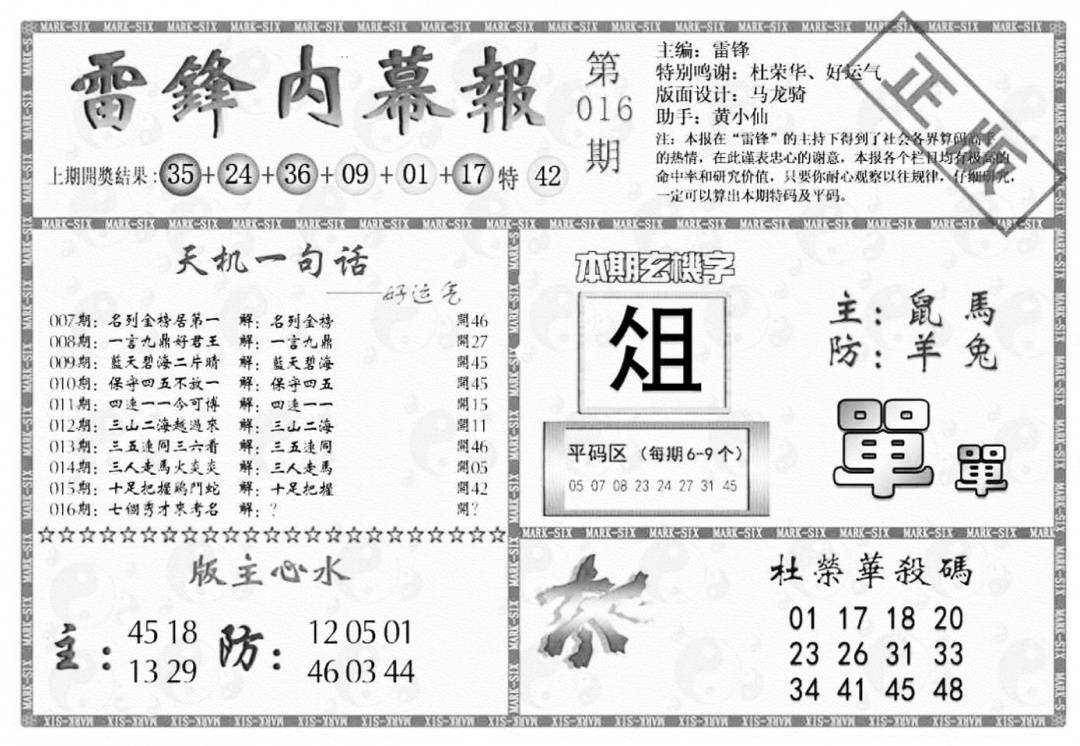 雷鋒内幕報
第
016
期
主编：雷锋
特别鸣谢：杜荣华、好运气
版面设计：马龙骑
助手：黄小仙
注：本报在“雷锋”的主持下得到了社会各界算码高手
的热情，在此谨表忠心的谢意，本报各个栏目均有极高的
命中率和研究价值，只要你耐心观察以往规律，仔细研究，
一定可以算出本期特码及平码。
正版
上期開獎結果：35+24+36+09+01+17特 42
天机一句话
——好运气
007期：名列金榜居第一 解：名列金榜 開46
008期：一言九鼎好君王 解：一言九鼎 開27
009期：藍天碧海二片晴 解：藍天碧海 開45
010期：保守四五不放一 解：保守四五 開45
011期：四連一一今可博 解：四連一一 開15
012期：三山二海越過來 解：三山二海 開11
013期：三五連同三六看 解：三五連同 開46
014期：三人走馬火炎炎 解：三人走馬 開05
015期：十足把握鷄鬥蛇 解：十足把握 開42
016期：七個秀才來考名 解：？ 開？
本期玄機字
俎
平码区（每期6-9个）
05 07 08 23 24 27 31 45
主：鼠 馬
防：羊 兔
單 單
版主心水
主：45 18
13 29
防：12 05 01
46 03 44
杀
杜榮華殺碼
01 17 18 20
23 26 31 33
34 41 45 48
MARK-SIX